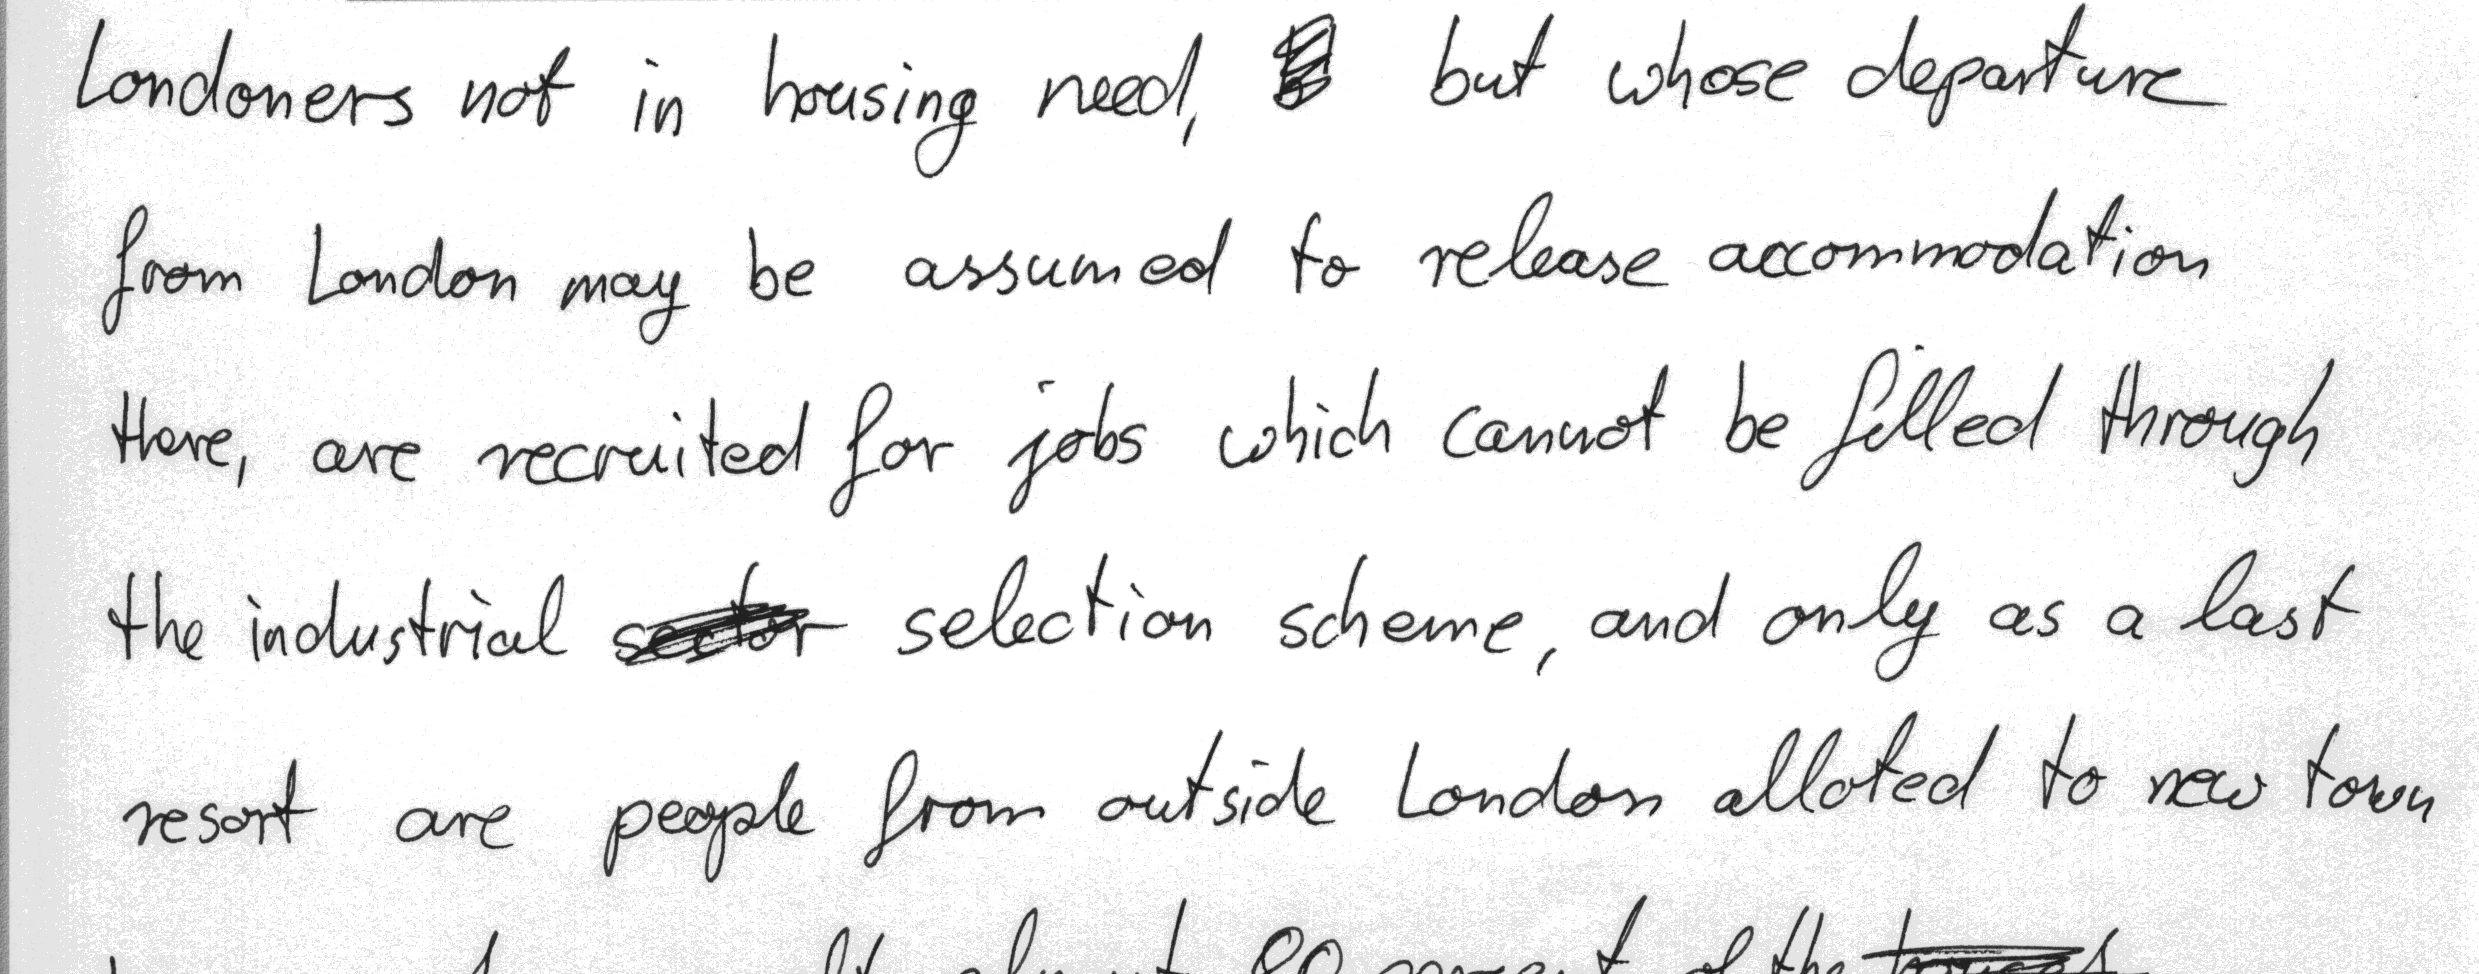 Londoners not in housing need, but whose departure
from London may be assumed to release accommodation
there, are recruited for jobs which cannot be filled through
the industrial selection scheme, and only as a last
resort are people from outside London alloted to new town
almost 80 percent of the